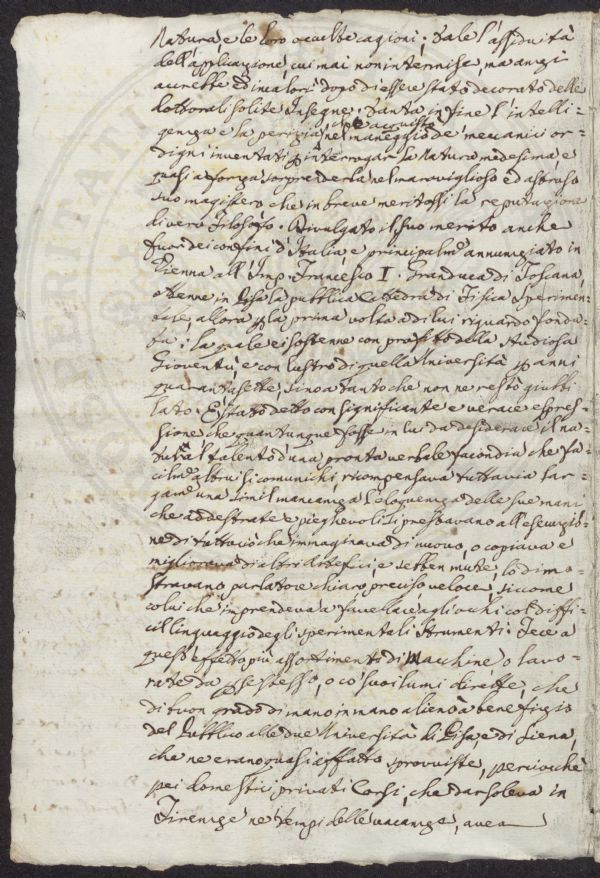 Natura, e le loro occulte cagioni; Tale l'assiduità
dell'applicazione, cui mai non intermise, ma anzi
accrebbe ed invalorì dopo d'essere stato decorato delle
dottorali solite Insegne. Tanta in fine l'intelli-
genza e la perizia nel maneggio de' meccanici or-
digni inventati p interrogar la Natura medesima e
quasi a forza sorprenderla nel maraviglioso ed astruso
suo magistero che in breve meritossi la reputazione
di vero Filosofo. Divulgato il suo merito anche
fuor dei confini d'Italia, e principalmᵉ annunziato in
Vienna all'Imp. Francesco I. Granduca di Toscana,
ottenne in Pisa la pubblica Cattedra di Fisica Sperimen-
tale, allora p la prima volta a di lui riguardo fonda-
ta: la quale ei sostenne con profitto della Studiosa
Gioventù, e con lustro di quella Università p anni
quarantasette, sino a tanto che non ne restò giubbi-
lato. È stato detto con significante e verace espres-
sione che quantunque fosse in lui da desiderare il na-
tural talento d'una pronta verbale facondia che fa-
cilmᵉ altrui si comunichi ricompensava tuttavia lar-
gamᵉ una simil mancanza l'eloquenza delle sue mani
che addestrate e pieghevoli si prestavano all'esecuzio-
ne di tuttociò che immaginava di nuovo, o copiava e
migliorava di altri Artefici, e sebben mute, lo dimo-
stravano parlatore chiaro, preciso veloce, siccome
colui che imprendeva a favellare agli occhi col diffi-
cil linguaggio degli sperimentali Strumenti. Fece a
quest'effetto più assortimenti di Macchine o lavo-
rate da p se stesso, o co' suoi lumi dirette, che
di buon grado di mano in mano alienò a benefizio
del Pubblico alle due Università di Pisa, e di Siena,
che ne erano quasi affatto sprovviste, perciocchè
pei domestici privati Corsi, che dar soleva in
Firenze ne' tempi delle vacanze, avea